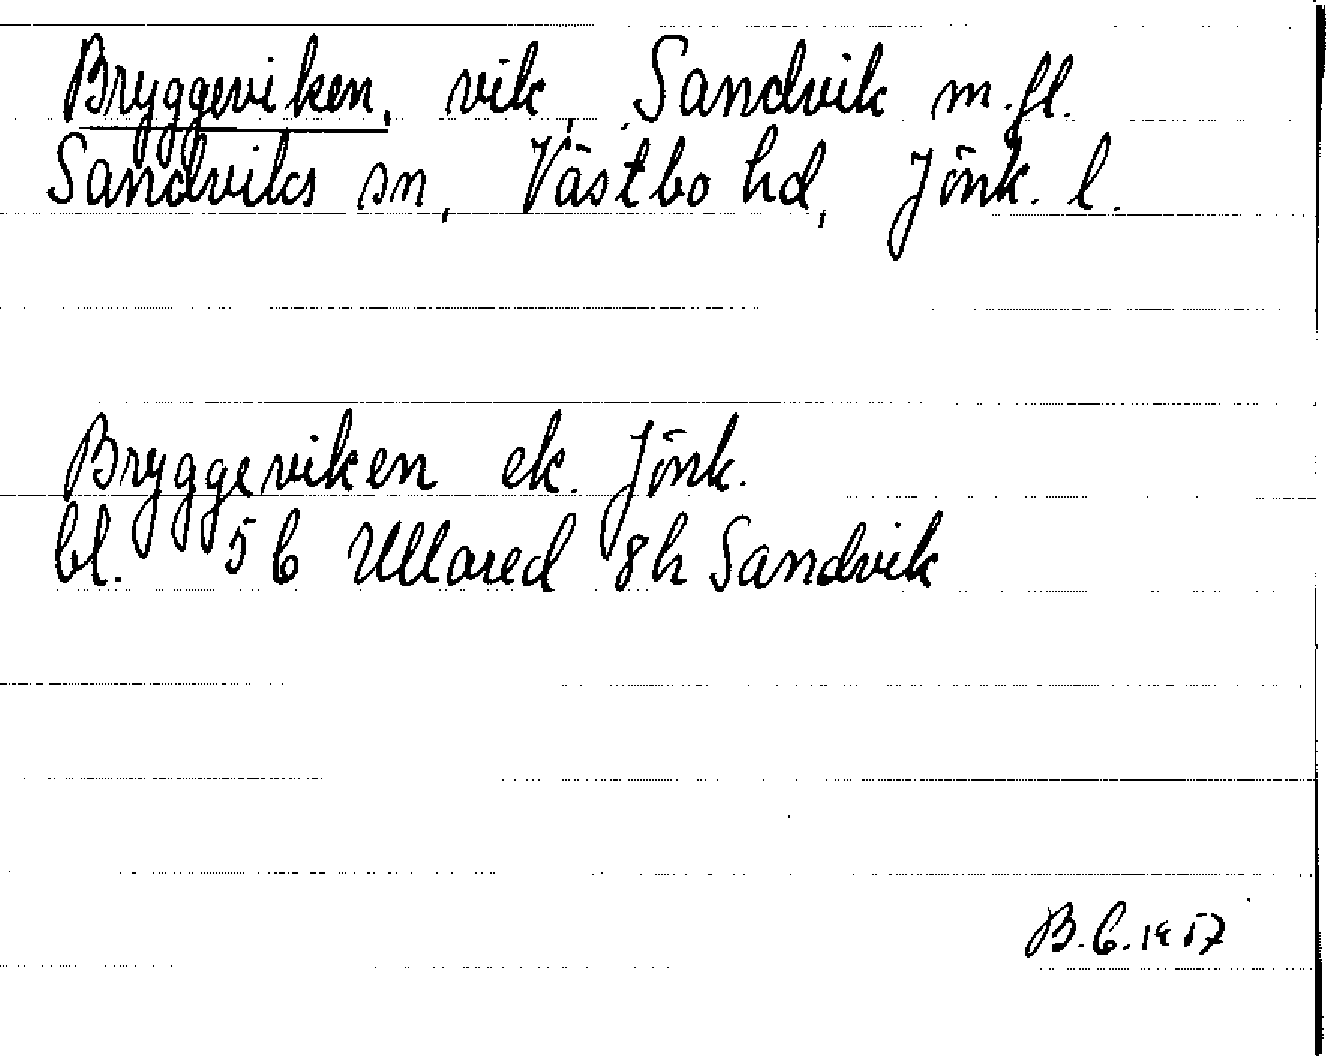 Bryggeviken, vik, Sandvik m.fl.
Sandviks sn, Västbo hd, Jönk. l.
Bryggeviken ek. Jönk.
bl. 5 C Ullared 8h Sandvik
B.C. 1957